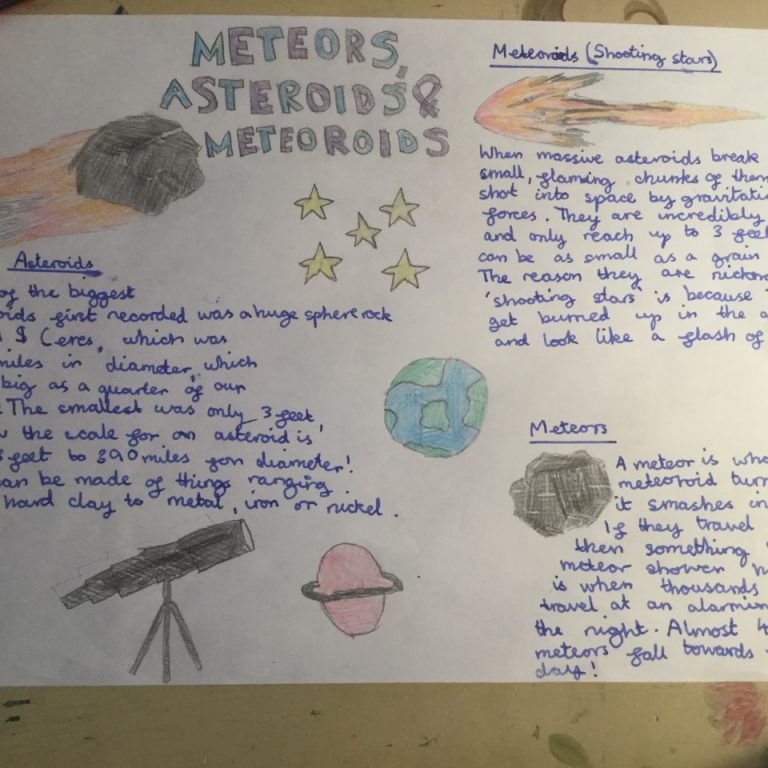 METEORS,
ASTEROIDS &
METEOROIDS
Asteroids
of the biggest
oids first recorded was a huge sphere rock
Ceres, which was
miles in diameter, which
big as a quarter of our
! The smallest was only 3 feet,
the scale for an asteroid is
3 feet to 390 miles for diameter!
can be made of things ranging
hard clay to metal, iron or nickel.
Meteoroids (Shooting stars)
When massive asteroids break
small, flaming chunks of them
shot into space by gravitati
forces. They are incredibly
and only reach up to 3 feet
can be as small as a grain
The reason they are nickna
'shooting stars' is because
get burned up in the a
and look like a flash of
Meteors
A meteor is wha
meteoroid turn
it smashes in
If they travel
then something
meteor shower
is when thousands
travel at an alarmin
the night. Almost 4
meteors fall towards
day!